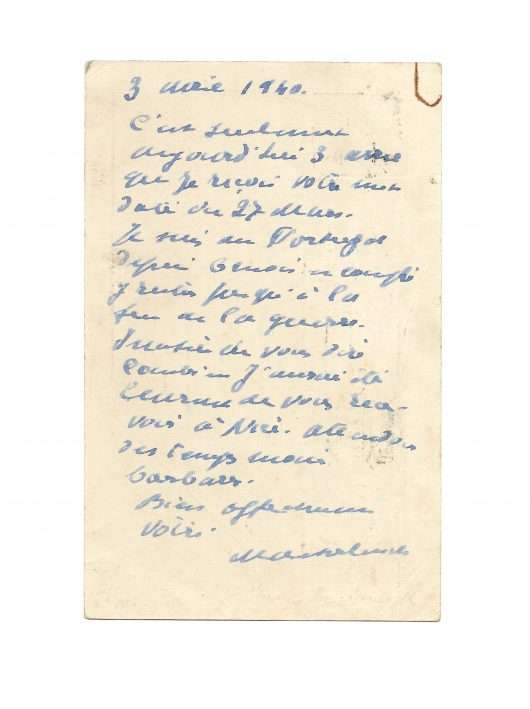 3 avril 1940.
C'est seulement
aujourd'hui 3 avril
que je reçois votre mot
daté du 27 Mars.
Je suis au Portugal
depuis 6 mois et compte
y rester jusqu'à la
fin de la guerre.
Inutile de vous dire
combien j'aurais été
heureux de vous rece-
voir à Nice. Attendons
des temps moins
barbares.
Bien affectueusement
Vôtre.